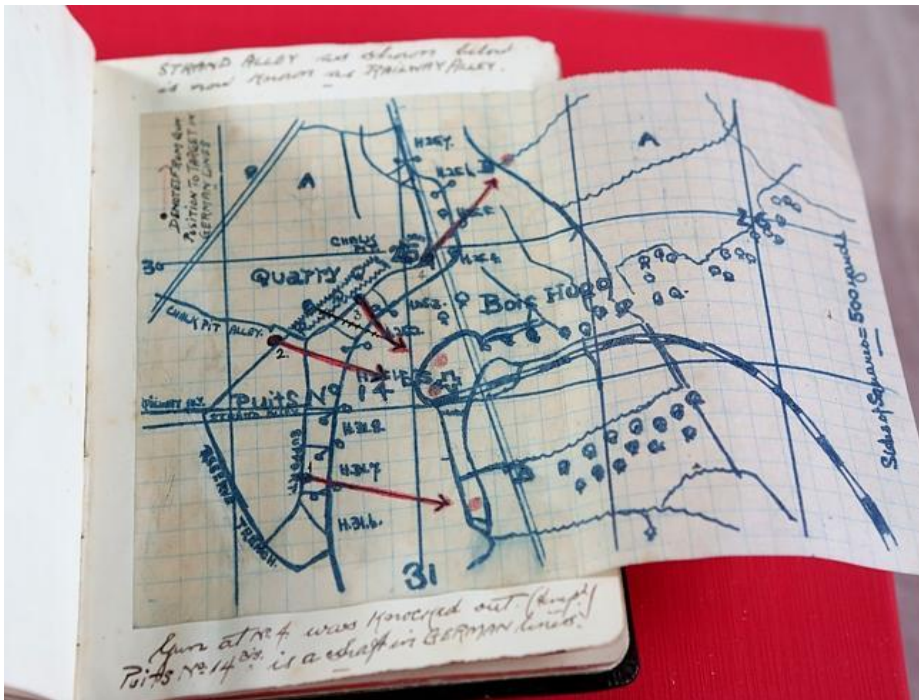 STRAND ALLEY as shown below
is now known as RAILWAY ALLEY.
DENOTES FROM GUN
POSITION TO TARGET IN
GERMAN LINES
A
A
H.25.7.
H.25.6.
CHALK
PIT
25
26
30
QUARRY
BOIS HUGO
CHALK PIT ALLEY.
4
3
2.
1
PUITS No 14
STRAND ALLEY
H.31.8.
H.31.7.
H.31.6.
RESERVE TRENCH.
31
Side of Squares = 500 yards
Gun at No. 4 was knocked out.
Puits No. 14 Bis. is a shaft in GERMAN lines.